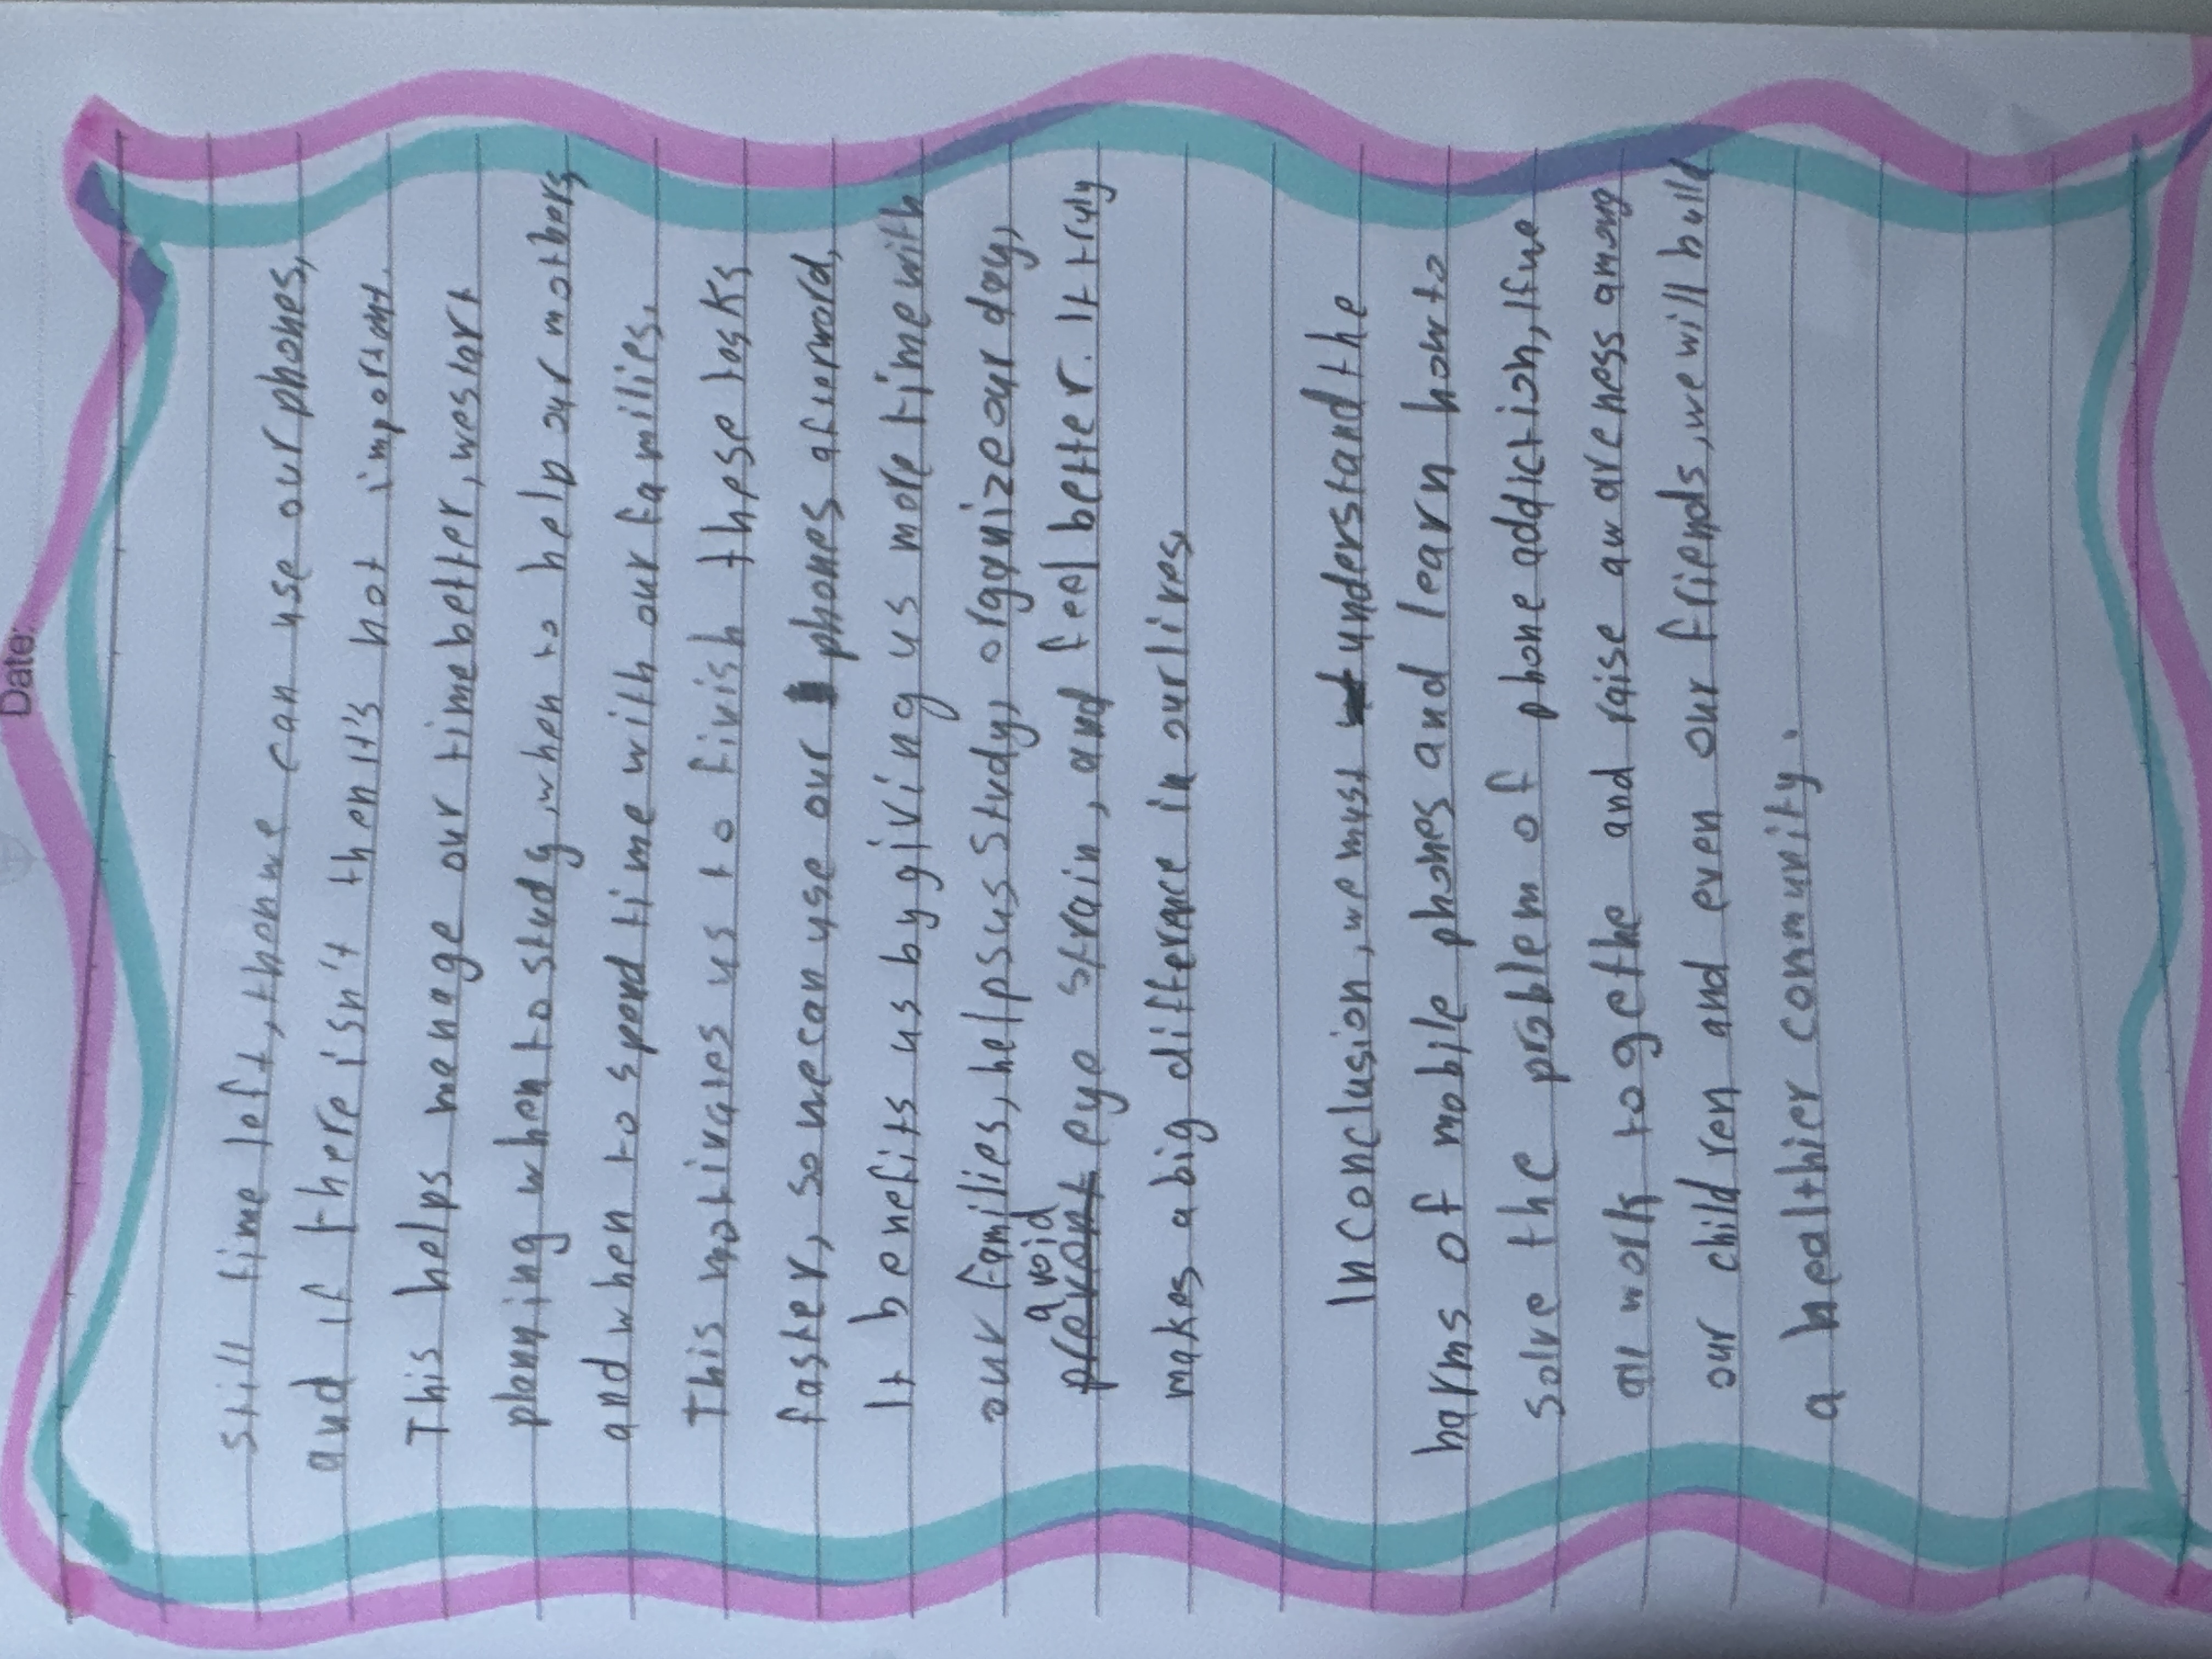 Date:
still time left, thenwe can use our phones,
and if there isn't then it's not important.
This helps menage our time better, we start
planning when to study, when to help our mothers,
and when to spend time with our families.
This motivates us to finish these tasks
faster, so we can use our phones afterword,
It benefits us by giving us more time with
our families, helps us study, organize our day,
avoid
prevent eye strain, and feel better. It truly
makes a big differance in our lives,
In conclusion, we must understand the
harms of mobile phones and learn how to
solve the problem of phone addiction, If we
all work togethe and raise awareness among
our children and even our friends, we will build
a healthier community.